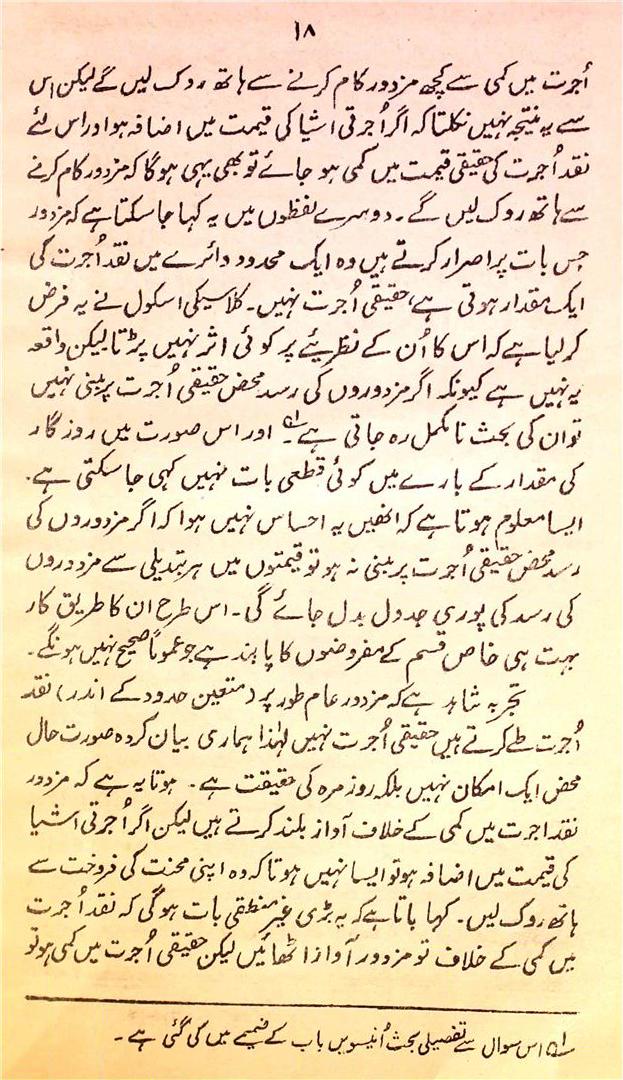 ۱۸
اُجرت میں کمی سے کچھ مزدور کام کرنے سے ہاتھ روک لیں گے لیکن اس
سے یہ نتیجہ نہیں نکلتا کہ اگر اُجرتی اشیا کی قیمت میں اضافہ ہو اور اس لئے
نقد اُجرت کی حقیقی قیمت میں کمی ہو جائے تو بھی یہی ہوگا کہ مزدور کام کرنے
سے ہاتھ روک لیں گے۔ دوسرے لفظوں میں یہ کہا جا سکتا ہے کہ مزدور
جس بات پر اصرار کرتے ہیں وہ ایک محدود دائرے میں نقد اُجرت کی
ایک مقدار ہوتی ہے، حقیقی اُجرت نہیں۔ کلاسیکی اسکول نے یہ فرض
کر لیا ہے کہ اس کا اُن کے نظریئے پر کوئی اثر نہیں پڑتا لیکن واقعہ
یہ نہیں ہے کیونکہ اگر مزدوروں کی رسد محض حقیقی اُجرت پر مبنی نہیں
تو ان کی بحث نامکمل رہ جاتی ہے۔ؔ۱ اور اس صورت میں روزگار
کی مقدار کے بارے میں کوئی قطعی بات نہیں کہی جا سکتی ہے۔
ایسا معلوم ہوتا ہے کہ انھیں یہ احساس نہیں ہوا کہ اگر مزدوروں کی
رسد محض حقیقی اُجرت پر مبنی نہ ہو تو قیمتوں میں ہر تبدیلی سے مزدوروں
کی رسد کی پوری جدول بدل جائے گی۔ اس طرح ان کا طریق کار
بہت ہی خاص قسم کے مفروضوں کا پابند ہے جو عموماً صحیح نہیں ہونگے۔
تجربہ شاہد ہے کہ مزدور عام طور پر (متعین حدود کے اندر) نقد
اُجرت طے کرتے ہیں حقیقی اُجرت نہیں لہٰذا ہماری بیان کردہ صورت حال
محض ایک امکان نہیں بلکہ روزمرہ کی حقیقت ہے۔ ہوتا یہ ہے کہ مزدور
نقد اجرت میں کمی کے خلاف آواز بلند کرتے ہیں لیکن اگر اُجرتی اشیا
کی قیمت میں اضافہ ہو تو ایسا نہیں ہوتا کہ وہ اپنی محنت کی فروخت سے
ہاتھ روک لیں۔ کہا جاتا ہے کہ یہ بڑی غیر منطقی بات ہوگی کہ نقد اُجرت
میں کمی کے خلاف تو مزدور آواز اٹھائیں لیکن حقیقی اُجرت میں کمی ہو تو
ؔ۱ اس سوال سے تفصیلی بحث اُنیسویں باب کے ضمیمے میں کی گئی ہے۔